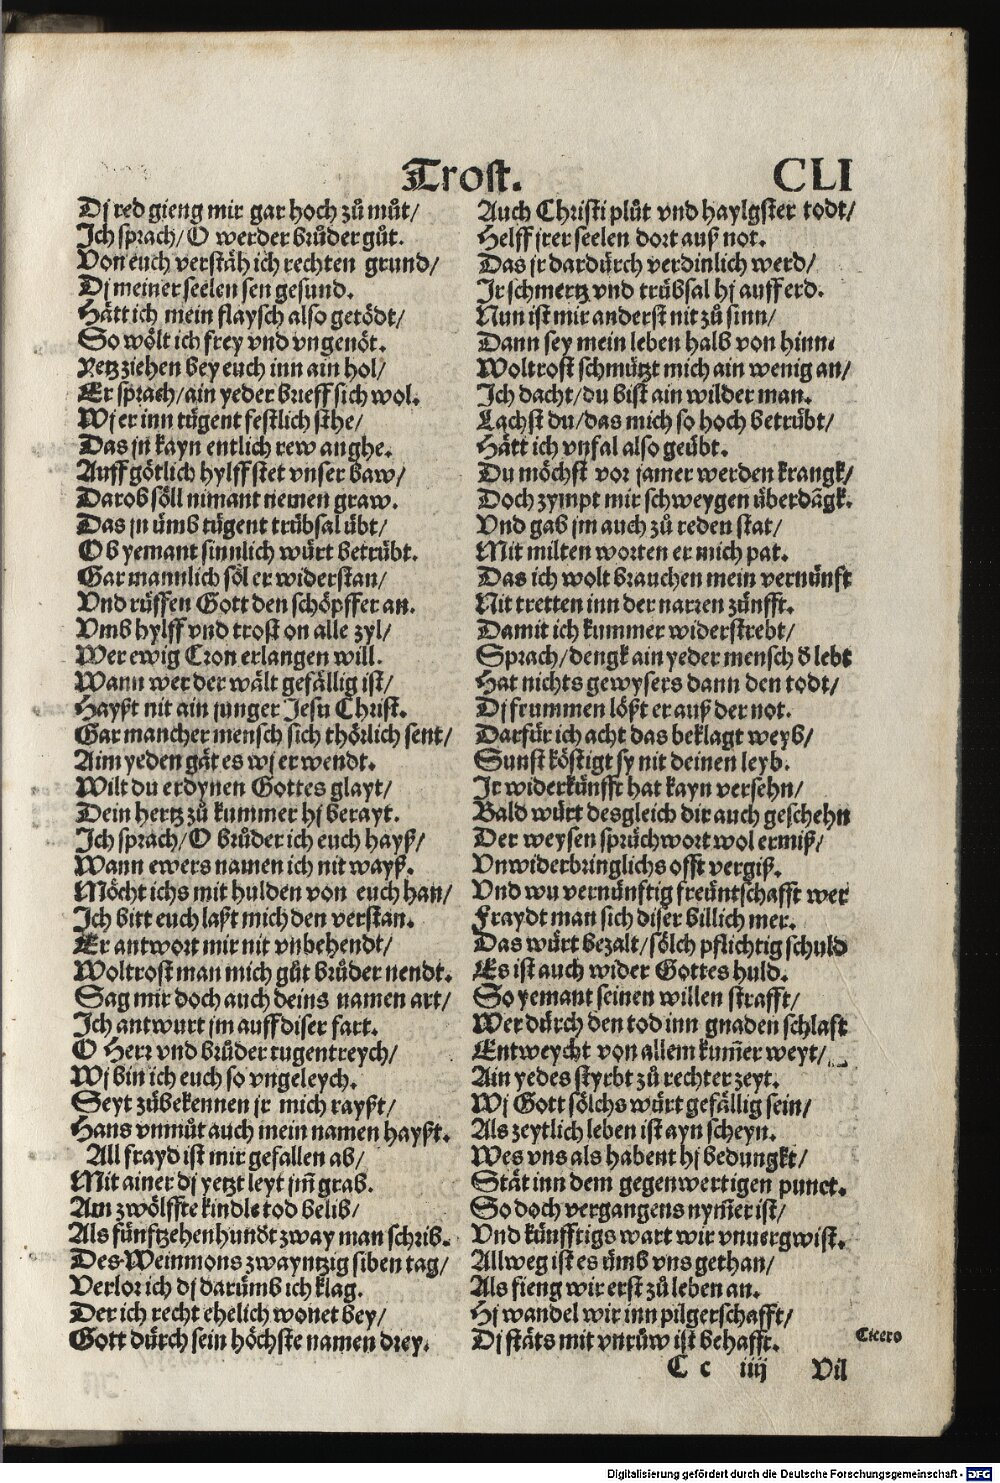 Trost. CLI
Dj red gieng mir gar hoch zů můt/
Ich sprach/ O werder brůder gůt.
Von euch verstäh ich rechten grund/
Dj meiner seelen sen gesund.
Hätt ich mein flaysch also getödt/
So wölt ich frey vnd vngenöt.
Yetz ziehen bey euch inn ain hol/
Er sprach/ ain yeder brieff sich wol.
Wj er inn tügent festlich sthe/
Das jn kayn entlich rew anghe.
Auff götlich hylff stet vnser baw/
Darob söll nimant nemen graw.
Das jn ümb tügent trübsal übt/
Ob yemant sinnlich würt betrübt.
Gar mannlich söl er widerstan/
Vnd rüffen Gott den schöpffer an.
Vmb hylff vnd trost on alle zyl/
Wer ewig Cron erlangen will.
Wann wer der wält gefällig ist/
Hayßt nit ain junger Jesu Christ.
Gar mancher mensch sich thörlich sent/
Aim yeden gät es wj er wendt.
Wilt du erdynen Gottes glayt/
Dein hertz zů kummer hj berayt.
Ich sprach/ O brůder ich euch hayß/
Wann ewers namen ich nit wayß.
Möcht ichs mit hulden von euch han/
Ich bitt euch laßt mich den verstan.
Er antwort mir nit vnbehendt/
Woltrost man mich gůt brůder nendt.
Sag mir doch auch deins namen art/
Ich antwurt jm auff diser fart.
O Herr vnd brůder tugentreych/
Wj bin ich euch so vngeleych.
Seyt zübekennen jr mich rayßt/
Hans vnmůt auch mein namen hayßt.
All frayd ist mir gefallen ab/
Mit ainer dj yetzt leyt jm̃ grab.
Am zwölffte kindls tod belib/
Als fünfftzehenhundt zway man schrib.
Des Weinmons zwayntzig siben tag/
Verlor ich dj darümb ich klag.
Der ich recht ehelich wonet bey/
Gott dürch sein höchste namen drey.
Auch Christi plůt vnd haylgster todt/
Helff jrer seelen dort auß not.
Das jr dardürch verdinlich werd/
Ir schmertz vnd trübsal hj auff erd.
Nun ist mir anderst nit zů sinn/
Dann sey mein leben halb von hinn.
Woltrost schmützt mich ain wenig an/
Ich dacht/ du bist ain wilder man.
Lachst du/ das mich so hoch betrübt/
Hätt ich vnfal also geübt.
Du möchst vor jamer werden krangk/
Doch zympt mir schweygen überdãgk.
Vnd gab jm auch zů reden stat/
Mit milten worten er mich pat.
Das ich wolt brauchen mein vernünft
Nit tretten inn der narren zünfft.
Damit ich kummer widerstrebt/
Sprach/ dengk ain yeder mensch d̕ lebt
Hat nichts gewysers dann den todt/
Dj frummen lößt er auß der not.
Darfür ich acht das beklagt weyb/
Sunst köstigt sy nit deinen leyb.
Ir widerkünfft hat kayn versehn/
Bald würt desgleich dir auch geschehn
Der weysen sprüchwort wol ermiß/
Vnwiderbringlichs offt vergiß.
Vnd wu vernünftig freüntschafft wer
Fraydt man sich diser billich mer.
Das würt bezalt/ sölch pflichtig schuld
Es ist auch wider Gottes huld.
So yemant seinen willen strafft/
Wer dürch den tod inn gnaden schlaft
Entweycht von allem kum̃er weyt/
Ain yedes styrbt zů rechter zeyt.
Wj Gott sölchs würt gefällig sein/
Als zeytlich leben ist ayn scheyn.
Wes vns als habent hj bedungkt/
Stät inn dem gegenwertigen punct.
So doch vergangens nym̃er ist/
Vnd künfftigs wart wir vnuergwist.
Allweg ist es ümb vns gethan/
Als fieng wir erst zů leben an.
Hj wandel wir inn pilgerschafft/
Dj stäts mit vnrůw ist behafft.
Cicero
C c iiij Vil
Digitalisierung gefördert durch die Deutsche Forschungsgemeinschaft - DFG